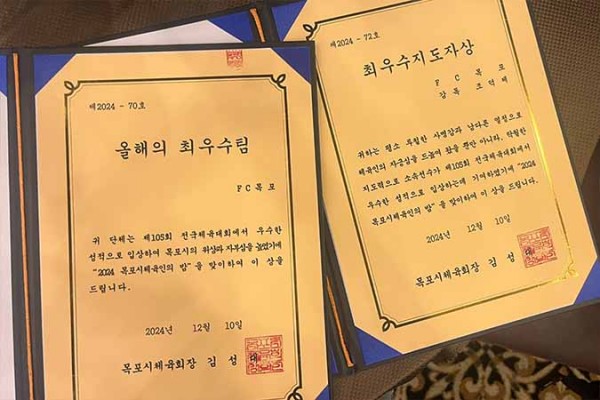 제2024 - 70호
올해의 최우수팀
FC목포
귀 단체는 제105회 전국체육대회에서 우수한
성적으로 입상하여 목포시의 위상과 자부심을 높였기에
"2024 목포시체육인의 밤"을 맞이하여 이 상을
드립니다.
2024년 12월 10일
목포시체육회장 김성대
제2024 - 72호
최우수지도자상
FC목포
감독 조덕제
귀하는 평소 투철한 사명감과 남다른 열정으로
체육인의 자긍심을 드높여 왔을 뿐만 아니라, 탁월한
지도력으로 소속선수가 제105회 전국체육대회에서
우수한 성적으로 입상하는데 기여하였기에 "2024
목포시체육인의 밤"을 맞이하여 이 상을 드립니다.
2024년 12월 10일
목포시체육회장 김성